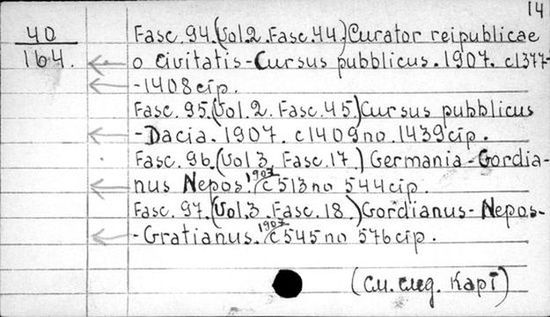 14
40
164.
Fasc. 94.(Vol.2. Fasc. 44.) Curator reipublicae
o civitatis - Cursus pubblicus. 1907. c1377-
-1408 cip.
Fasc. 95.(Vol. 2. Fasc. 45) Cursus pubblicus
- Dacia. 1907. c1409 no. 1439 cip.
Fasc. 96.(Vol 3. Fasc. 17.) Germania - Gordia-
nus Nepos. 1907 c 513 no 544 cip.
Fasc. 97.(Vol.3. Fasc. 18.) Gordianus - Nepos-
- Gratianus. 1907 c 545 no 576 cip.
(См. след. карт)